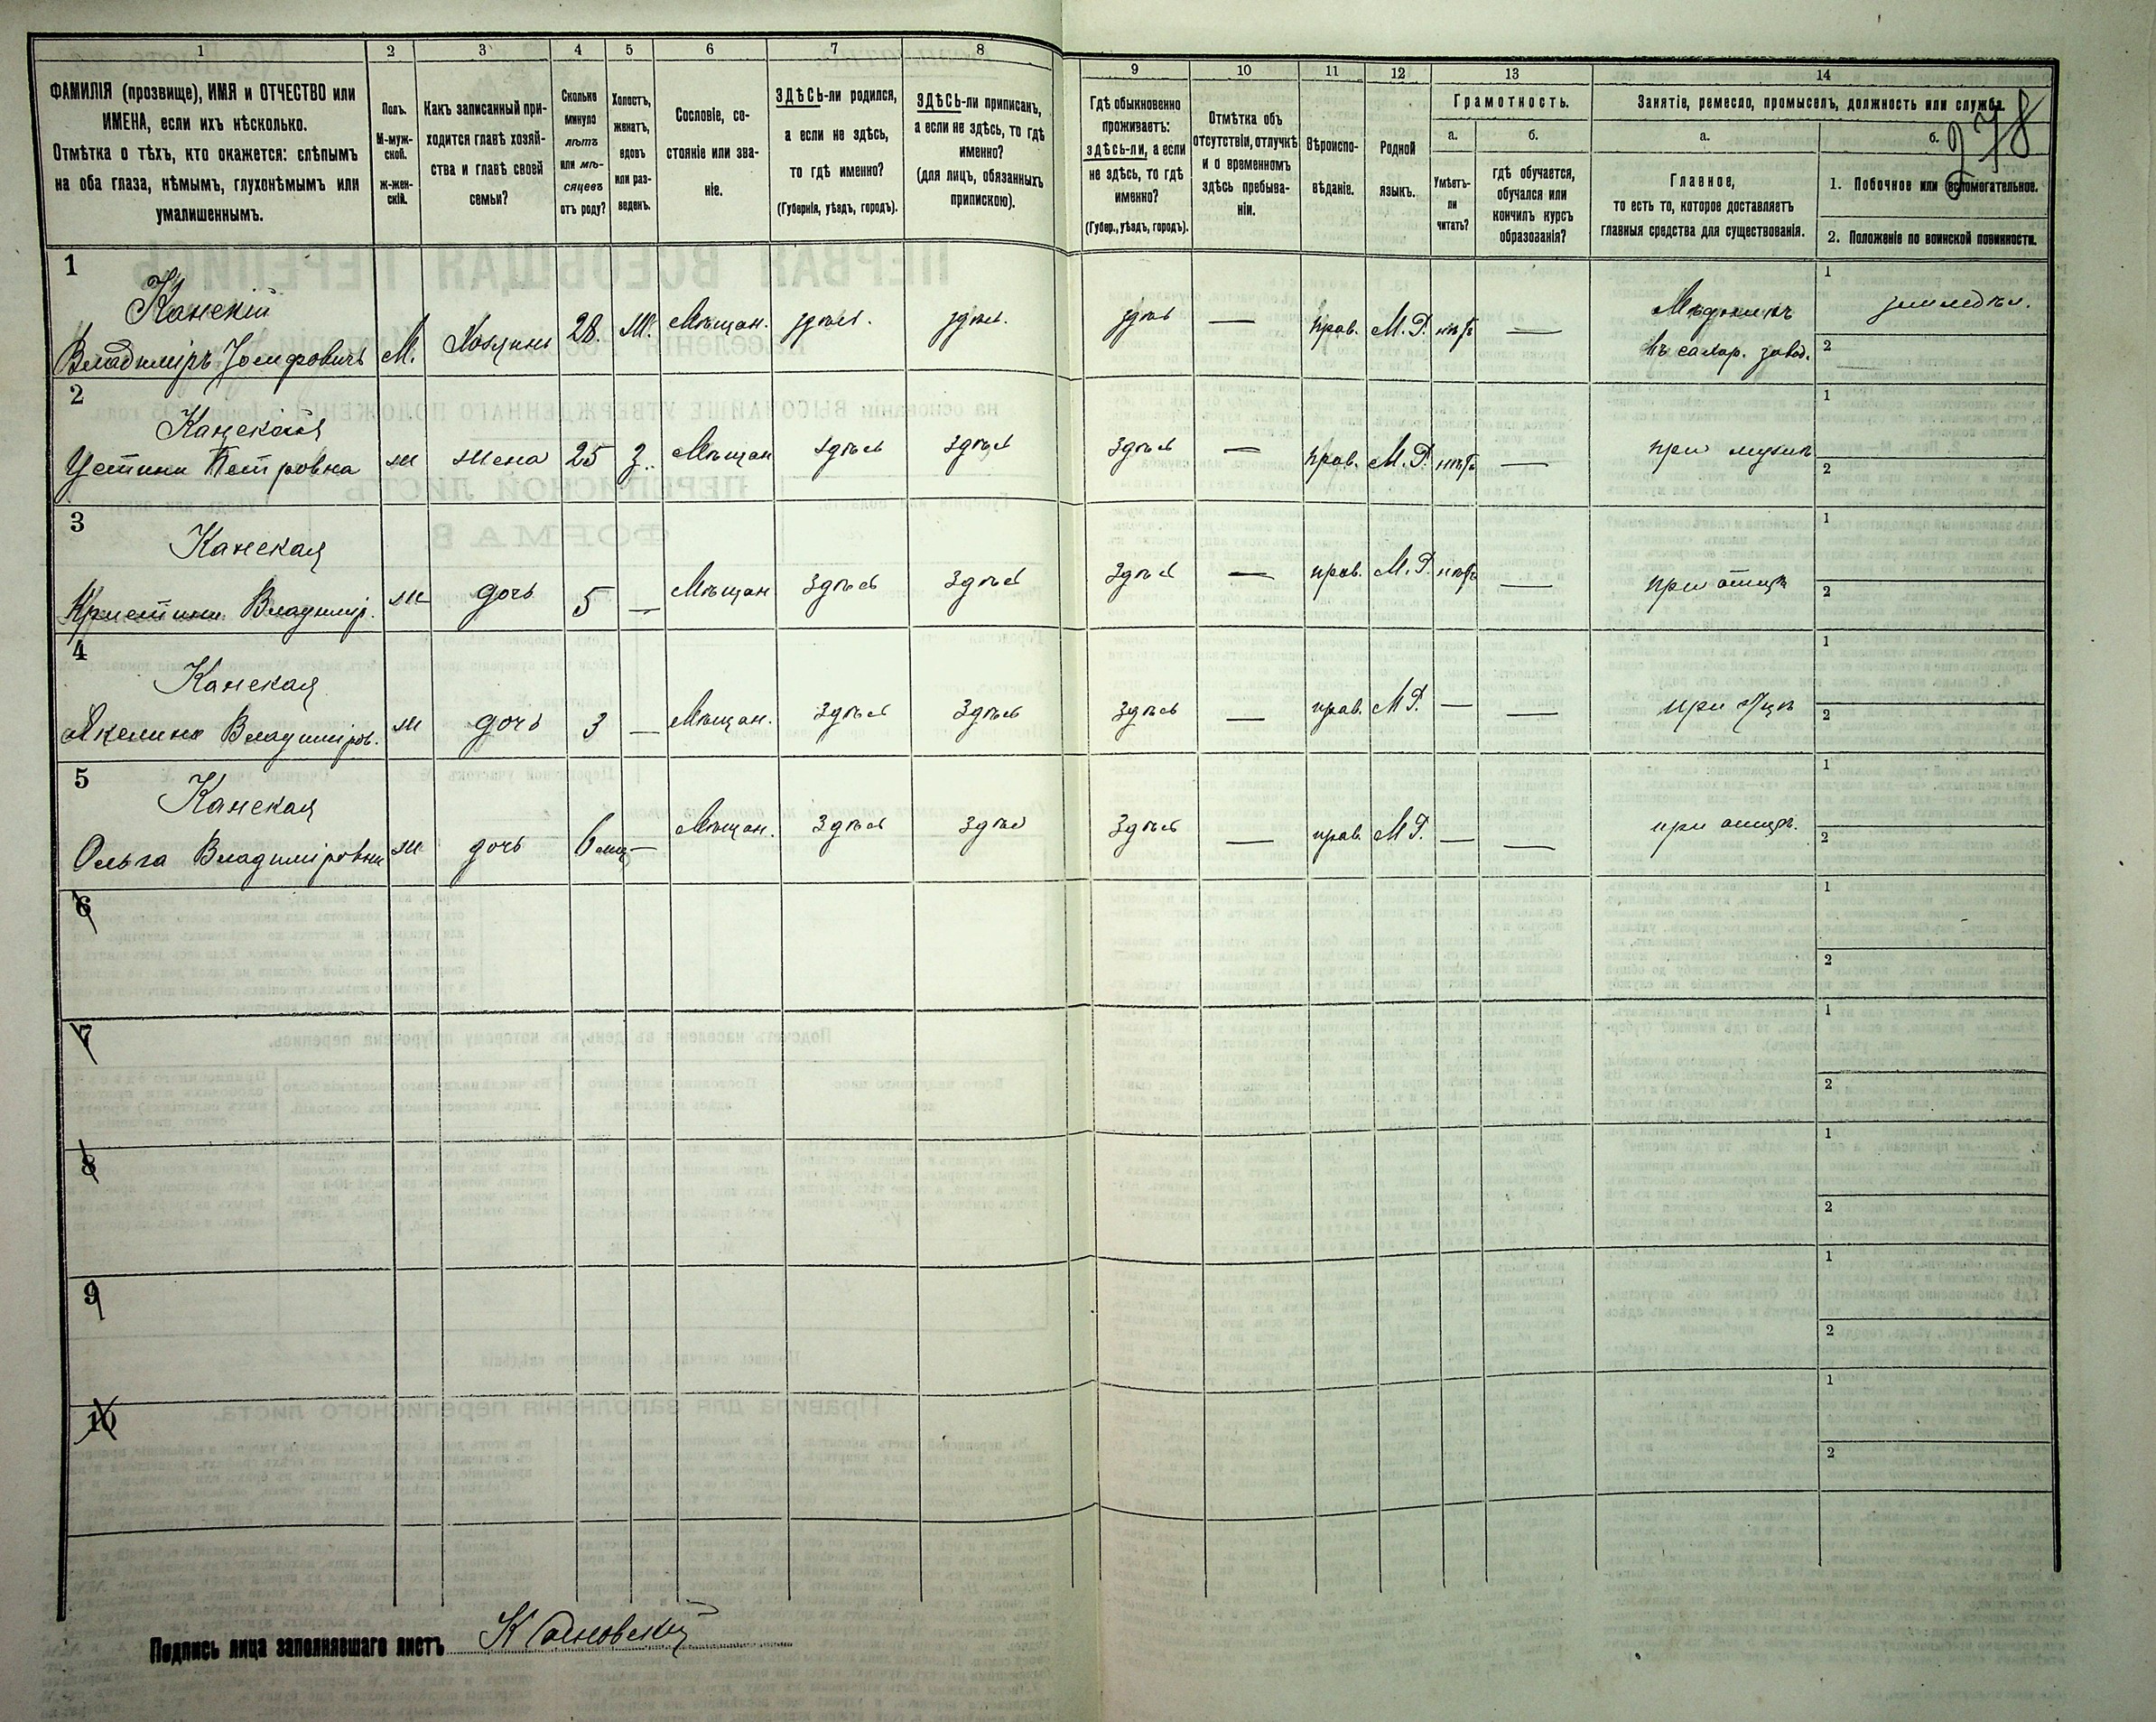 1 2 3 4 5 6 7 8 9 10 11 12 13 14
ФАМИЛІЯ (прозвище), ИМЯ и ОТЧЕСТВО или
ИМЕНА, если ихъ нѣсколько.
Отмѣтка о тѣхъ, кто окажется: слѣпымъ
на оба глаза, нѣмымъ, глухонѣмымъ или
умалишеннымъ.
Полъ.
М-муж-
ской.
ж-жен-
скій.
Какъ записанный при-
ходится главѣ хозяй-
ства и главѣ своей
семьи?
Сколько
минуло
лѣтъ
или мѣ-
сяцевъ
отъ роду?
Холостъ,
женатъ,
вдовъ
или раз-
веденъ.
Сословіе, со-
стояніе или зва-
ніе.
ЗДѢСЬ-ли родился,
а если не здѣсь,
то гдѣ именно?
(Губернія, уѣздъ, городъ).
ЗДѢСЬ-ли приписанъ,
а если не здѣсь, то гдѣ
именно?
(для лицъ, обязанныхъ
припискою).
Гдѣ обыкновенно
проживаетъ:
здѣсь-ли, а если
не здѣсь, то гдѣ
именно?
(Губер., уѣздъ, городъ).
Отмѣтка объ
отсутствіи, отлучкѣ
и о временномъ
здѣсь пребыва-
ніи.
Вѣроиспо-
вѣданіе.
Родной
языкъ.
Грамотность.
а.
Умѣетъ-
ли
читать?
б.
гдѣ обучается,
обучался или
кончилъ курсъ
образованія?
Занятіе, ремесло, промыселъ, должность или служба.
278
а.
Главное,
то есть то, которое доставляетъ
главныя средства для существованія.
б.
1. Побочное или вспомогательное.
2. Положеніе по воинской повинности.
1
Канскій
Владиміръ Іосифовичъ М. Хозяинъ 28. Ж. Мѣщан. здѣсь. здѣсь. здѣсь — прав. М.Р. нѣтъ —
Мѣдникъ
въ сахар. завод.
1 земледѣл.
2
2
Канская
Устинья Петровна ж жена 25 З. Мѣщан здѣсь здѣсь здѣсь — прав. М.Р. нѣтъ — при мужѣ
1
2
3
Канская
Кристина Владимір. ж дочь 5 — Мѣщан здѣсь здѣсь здѣсь — прав. М.Р. нѣтъ — при отцѣ
1
2
4
Канская
Акелина Владиміров. ж дочь 3 — Мѣщан. здѣсь здѣсь здѣсь — прав. М Р. — — при отцѣ
1
2
5
Канская
Ольга Владиміровна ж дочь 6 мѣц — Мѣщан. здѣсь здѣсь здѣсь — прав. М Р. — — при отцѣ.
1
2
6
1
2
7
1
2
8
1
2
9
1
2
10
1
2
Подпись лица заполнявшаго листъ